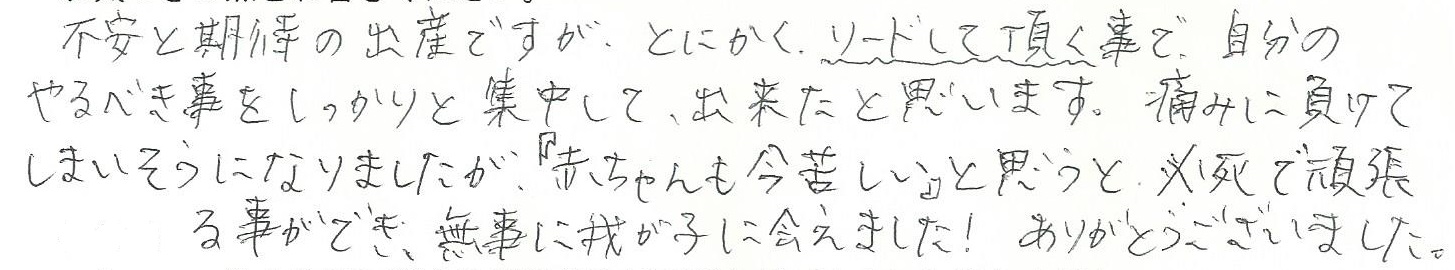 不安と期待の出産ですが、とにかく、リードして頂く事で、自分の
やるべき事をしっかりと集中して、出来たと思います。痛みに負けて
しまいそうになりましたが、『赤ちゃんも今苦しい』と思うと、必死で頑張
る事ができ、無事に我が子に会えました！ ありがとうございました。